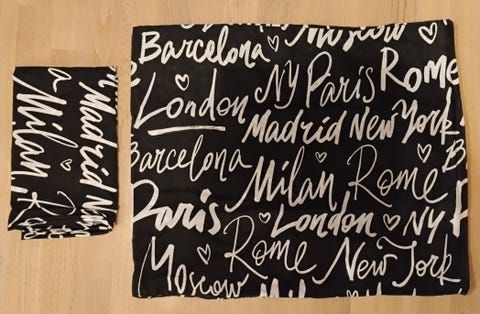 Madrid Ny
Milan
Moscow
Barcelona
NY Paris Rome
London
Madrid New York
Barcelona
Milan Rome
Paris
London NY
Rome
Moscow
New York